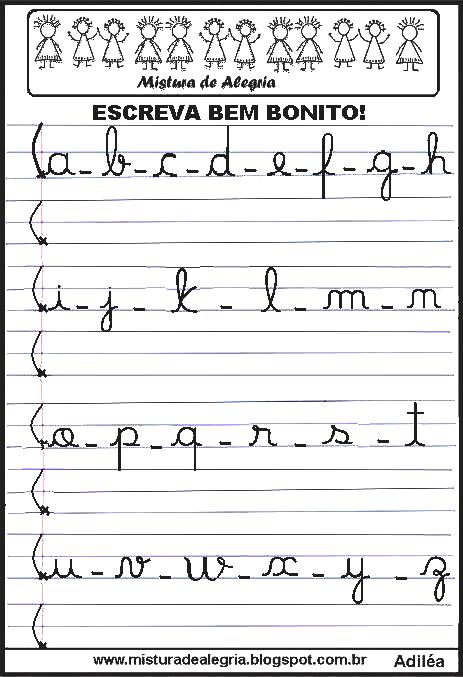 Mistura de Alegria
ESCREVA BEM BONITO!
a - b - c - d - e - f - g - h
i - j - k - l - m - n
o - p - q - r - s - t
u - v - w - x - y - z
www.misturadealegria.blogspot.com.br Adiléa